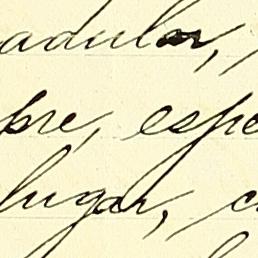 adular,
pre, espe
lugar, c